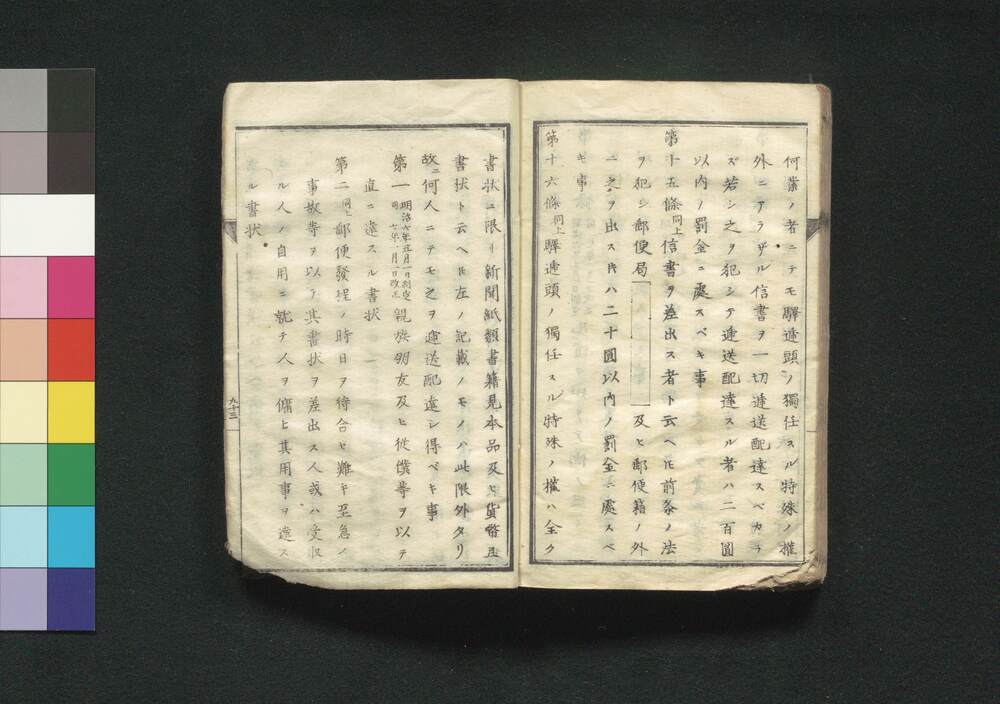 何業ノ者ニテモ驛遞頭ノ獨任スル特殊ノ權
外ニアラザル信書ヲ一切遞送配達スベカラ
ズ若シ之ヲ犯シテ遞送配達スル者ハ二百圓
以内ノ罰金ニ處スベキ事
第十五條同上信書ヲ差出ス者ト云ヘ𪜈前条ノ法
ヲ犯シ郵便局及ヒ郵便籍ノ外
ニ之ヲ出ス𪜈ハ二十圓以内ノ罰金ニ處スベ
キ事
第十六條同上驛遞頭ノ獨任スル特殊ノ權ハ全ク
書状ニ限リ新聞紙類書籍見本品及ヒ貨幣且
書状ト云ヘ𪜈左ノ記載ノモノハ此限外タリ
故ニ何人ニテモ之ヲ運送配達シ得ベキ事
第一明治六年五月一日創定同七年一月一日改正親族朋友及ヒ從僕等ヲ以テ
直ニ達スル書状
第二同上郵便發程ノ時日ヲ待合セ難キ至急ノ
事故等ヲ以テ其書状ヲ差出ス人或ハ受取
ル人ノ自用ニ就テ人ヲ傭ヒ其用事ヲ達ス
ル書状
九十三